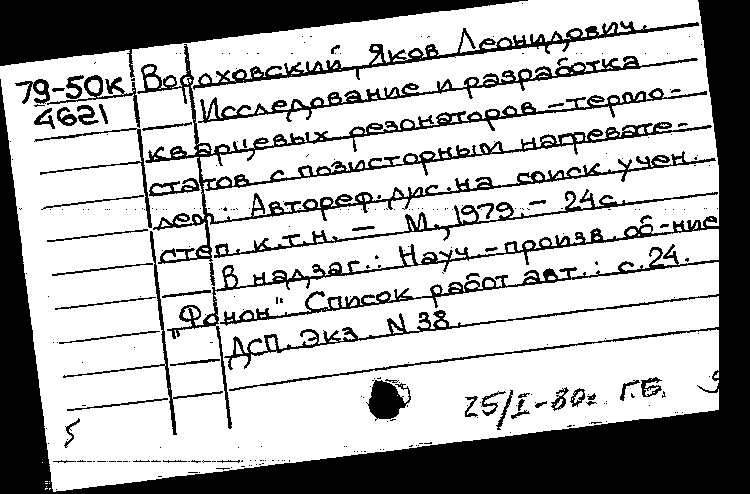 79-50к Вороховский, Яков Леонидович.
4621 Исследование и разработка
кварцевых резонаторов – термо-
статов с позисторным нагревате-
лем: Автореф. дис. на соиск. учен.
степ. к.т.н. – М., 1979. – 24с.
В надзаг.: Науч.-произв. об-ние
"Фонон". Список работ авт.: с.24.
ДСП. Экз. N 38.
25/I-80г Г.Б.